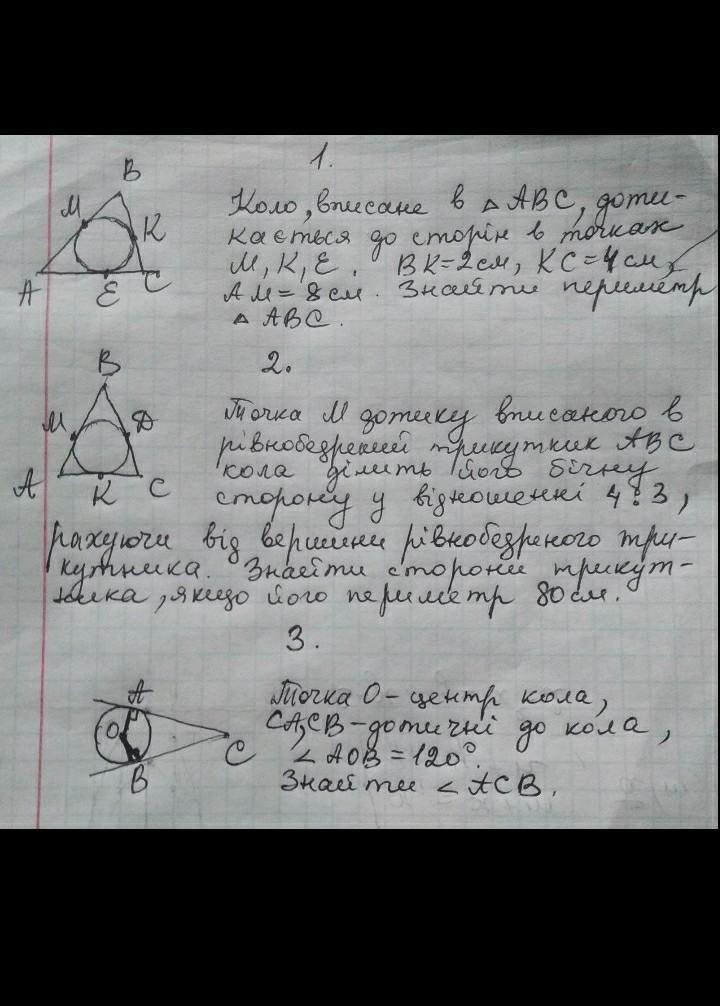 1.
B
M
K
A
E
C
Коло, вписане в △ ABC, доти-
кається до сторін в точках
M, K, E. BK=2см, KC=4см,
AM=8см. Знайти периметр
△ ABC.
2.
B
M
Д
A
K
C
Точка M дотику вписаного в
рівнобедрений трикутник ABC
кола ділить його бічну
сторону у відношенні 4:3,
рахуючи від вершини рівнобедреного три-
кутника. Знайти сторони трикут-
ника, якщо його периметр 80см.
3.
A
O
C
B
Точка O - центр кола,
CA, CB - дотичні до кола,
∠ AOB = 120°.
Знайти ∠ ACB.